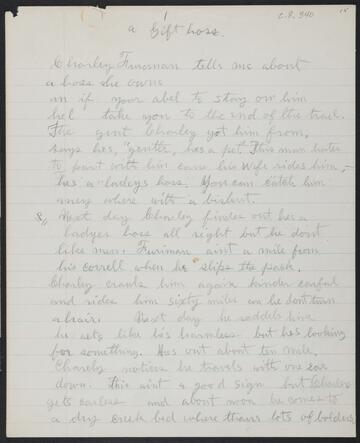 1
C.R. 340
a Gift hoss.
Charley Furiman tells me about
a hoss he owns
an if your abel to stay on him
hel take you to the end of the trail.
The gent Charley got him from,
says hes, "gentle, hes a pet. This man hates
to part with him cause his wife rides him,
hes a ladeys hoss. You can catch him
aney where with a biskut.
Next day Charley findes out hes a
ladyes hoss all right but he dont
like men. Furiman aint a mile from
his correll when he slips the pack.
Charley crauls him again kinder carful
and rides him sixty miles an he dont turn
a hair. Next day he saddels him
he acts like hes harmless but hes looking
for something. Hes out about ten mile,
Charley notices he travels with one ear
down. This aint a good sign but Charley
gets carless and about noon he comes to
a dry creek bed where thairs lots of bolders